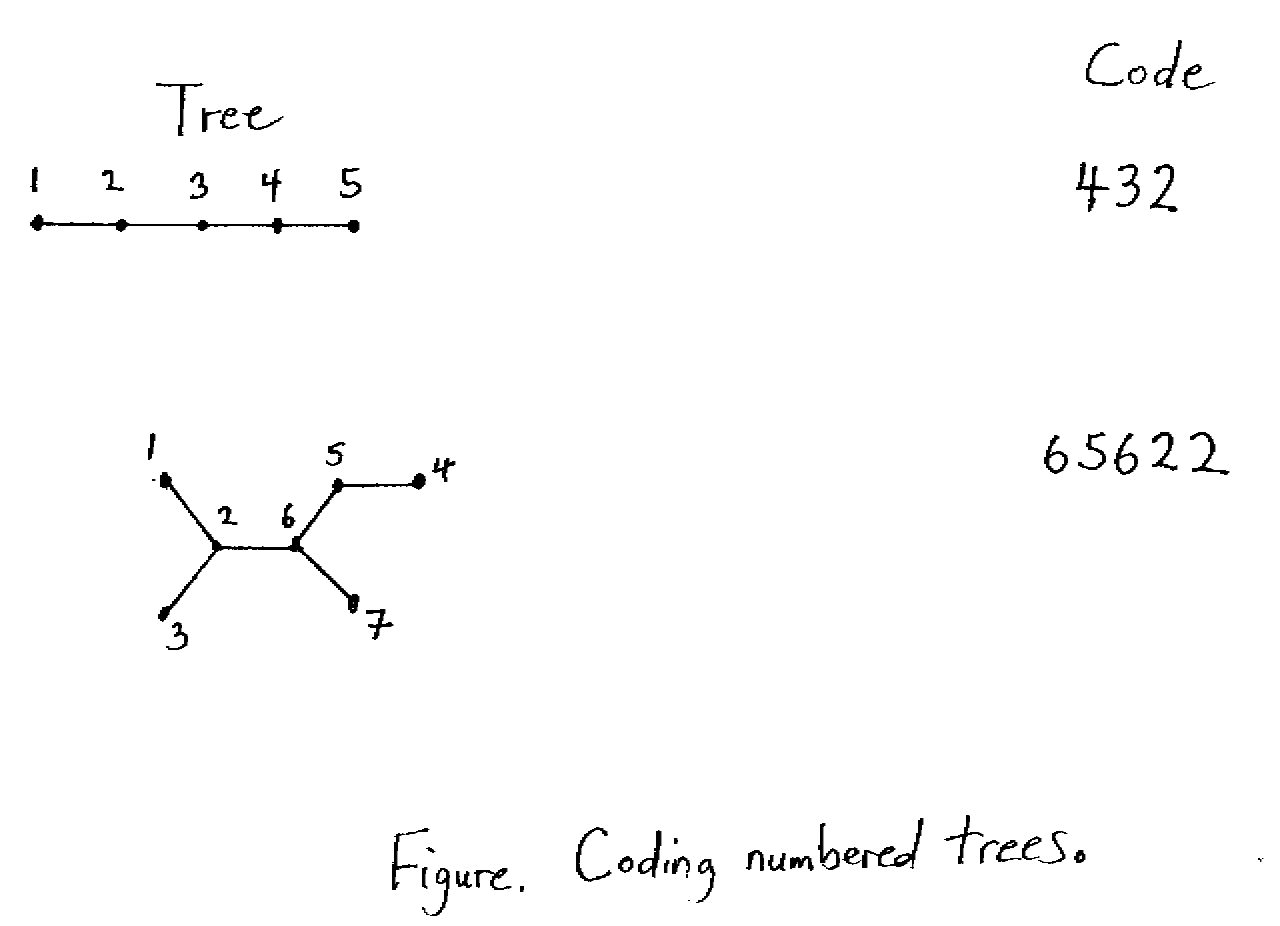 Tree
Code
1 2 3 4 5
432
1
2
3
6
5
4
7
65622
Figure. Coding numbered trees.